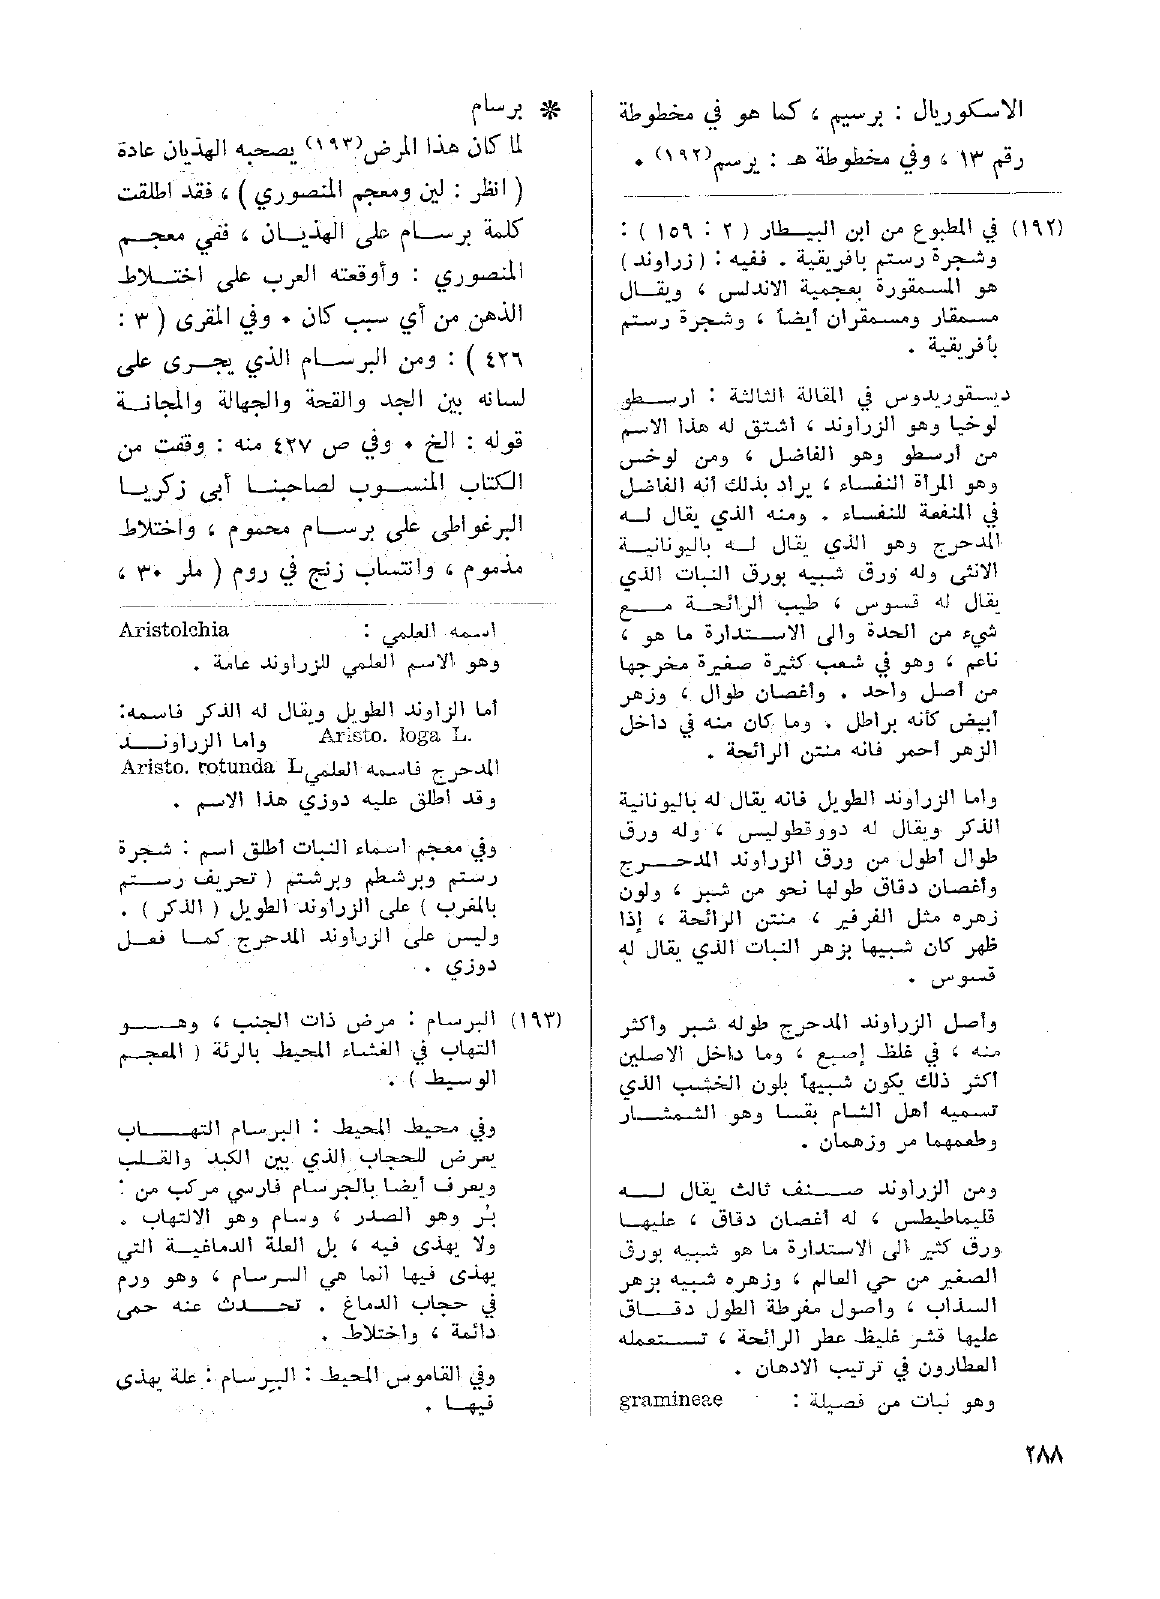 الاسكوريال : برسيم ، كما هو في مخطوطة
رقم ١٣ ، وفي مخطوطة هـ : يرسم(١٩٢) ٠
(١٩٢) في المطبوع من ابن البيطار ( ٢ : ١٥٩ ) :
وشجرة رستم بافريقية . ففيه : ( زراوند )
هو المسمقورة بعجمية الاندلس ، ويقال
مسمقار ومسمقران أيضاً ، وشجرة رستم
بأفريقية .
ديسقوريدوس في المقالة الثالثة : ارسطو
لوخيا وهو الزراوند ، اشتق له هذا الاسم
من أرسطو وهو الفاضل ، ومن لوخس
وهو المرأة النفساء ، يراد بذلك أنه الفاضل
في المنفعة للنفساء . ومنه الذي يقال له
المدحرج وهو الذي يقال له باليونانية
الانثى وله ورق شبيه بورق النبات الذي
يقال له قسوس ، طيب الرائحة مع
شيء من الحدة والى الاستدارة ما هو ،
ناعم ، وهو في شعب كثيرة صغيرة مخرجها
من أصل واحد . وأغصان طوال ، وزهر
أبيض كأنه براطل . وما كان منه في داخل
الزهر أحمر فانه منتن الرائحة .
واما الزراوند الطويل فانه يقال له باليونانية
الذكر ويقال له دوورقطوليس ، وله ورق
طوال أطول من ورق الزراوند المدحرج
وأغصان دقاق طولها نحو من شبر ، ولون
زهره مثل الفرفير ، منتن الرائحة ، إذا
ظهر كان شبيها بزهر النبات الذي يقال له
قسوس .
وأصل الزراوند المدحرج طوله شبر وأكثر
منه ، في غلظ إصبع ، وما داخل الاصلين
أكثر ذلك يكون شبيها بلون الخشب الذي
تسميه أهل الشام بقسا وهو الشمشار
وطعمهما مر وزهمان .
ومن الزراوند صنف ثالث يقال له
قليماطيطس ، له أغصان دقاق ، عليها
ورق كثير الى الاستدارة ما هو شبيه بورق
الصغير من حي العالم ، وزهره شبيه بزهر
السذاب ، واصول مفرطة الطول دقاق
عليها قشر غليظ عطر الرائحة ، تستعمله
العطارون في ترتيب الادهان .
وهو نبات من فصيلة : gramineae
* برسام
لما كان هذا المرض(١٩٣) يصحبه الهذيان عادة
( انظر : لين ومعجم المنصوري ) ، فقد اطلقت
كلمة برسام على الهذيان ، ففي معجم
المنصوري : وأوقعته العرب على اختلاط
الذهن من أي سبب كان ٠ وفي المقرى ( ٣ :
٤٢٦ ) : ومن البرسام الذي يجرى على
لسانه بين الجد والقحة والجهالة والمجانة
قوله : الخ ٠ وفي ص ٤٢٧ منه : وقفت من
الكتاب المنسوب لصاحبنا أبي زكريا
البرغواطي على برسام محموم ، واختلاط
مذموم ، وانتساب زنج في روم ( ملر ٣٠ ،
اسمه العلمي : Aristolchia
وهو الاسم العلمي للزراوند عامة .
أما الزاوند الطويل ويقال له الذكر فاسمه:
Aristo. loga L. واما الزراوند
المدحرج فاسمه العلمي Aristo. rotunda L
وقد أطلق عليه دوزي هذا الاسم .
وفي معجم اسماء النبات أطلق اسم : شجرة
رستم وبرشطم وبرشتم ( تحريف رستم
بالمغرب ) على الزراوند الطويل ( الذكر ) .
وليس على الزراوند المدحرج كما فعل
دوزي .
(١٩٣) البرسام : مرض ذات الجنب ، وهو
التهاب في الغشاء المحيط بالرئة ( المعجم
الوسيط ) .
وفي محيط المحيط : البرسام التهاب
يعرض للحجاب الذي بين الكبد والقلب
ويعرف أيضا بالجرسام فارسي مركب من :
بُر وهو الصدر ، وسام وهو الالتهاب .
ولا يهذى فيه ، بل العلة الدماغية التي
يهذى فيها انما هي السرسام ، وهو ورم
في حجاب الدماغ . تحدث عنه حمى
دائمة ، واختلاط .
وفي القاموس المحيط : البرسام : علة يهذى
فيها .
٢٨٨